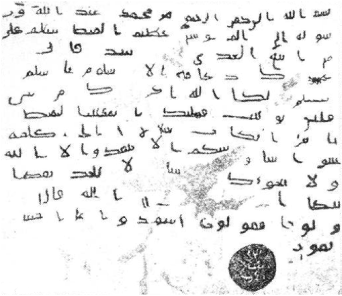 بسم الله الرحمن الرحيم من محمد عبد الله ور
سوله الى المقوقس عظيم القبط سلام على
من اتبع الهدى بعد فا
بدعاية الاسلام اسلم
تسلم يؤتك الله اجرك مرتين
فان توليت فعليك القبط
يا اهل الكتاب تعالوا الى كلمة
سوا بيننا وبينكم الا نعبد الا الله
ولا نشرك به شيا ولا يتخذ بعضنا
بعضا الله فان
تولوا فقولوا اشهدوا بانا مس
لمون